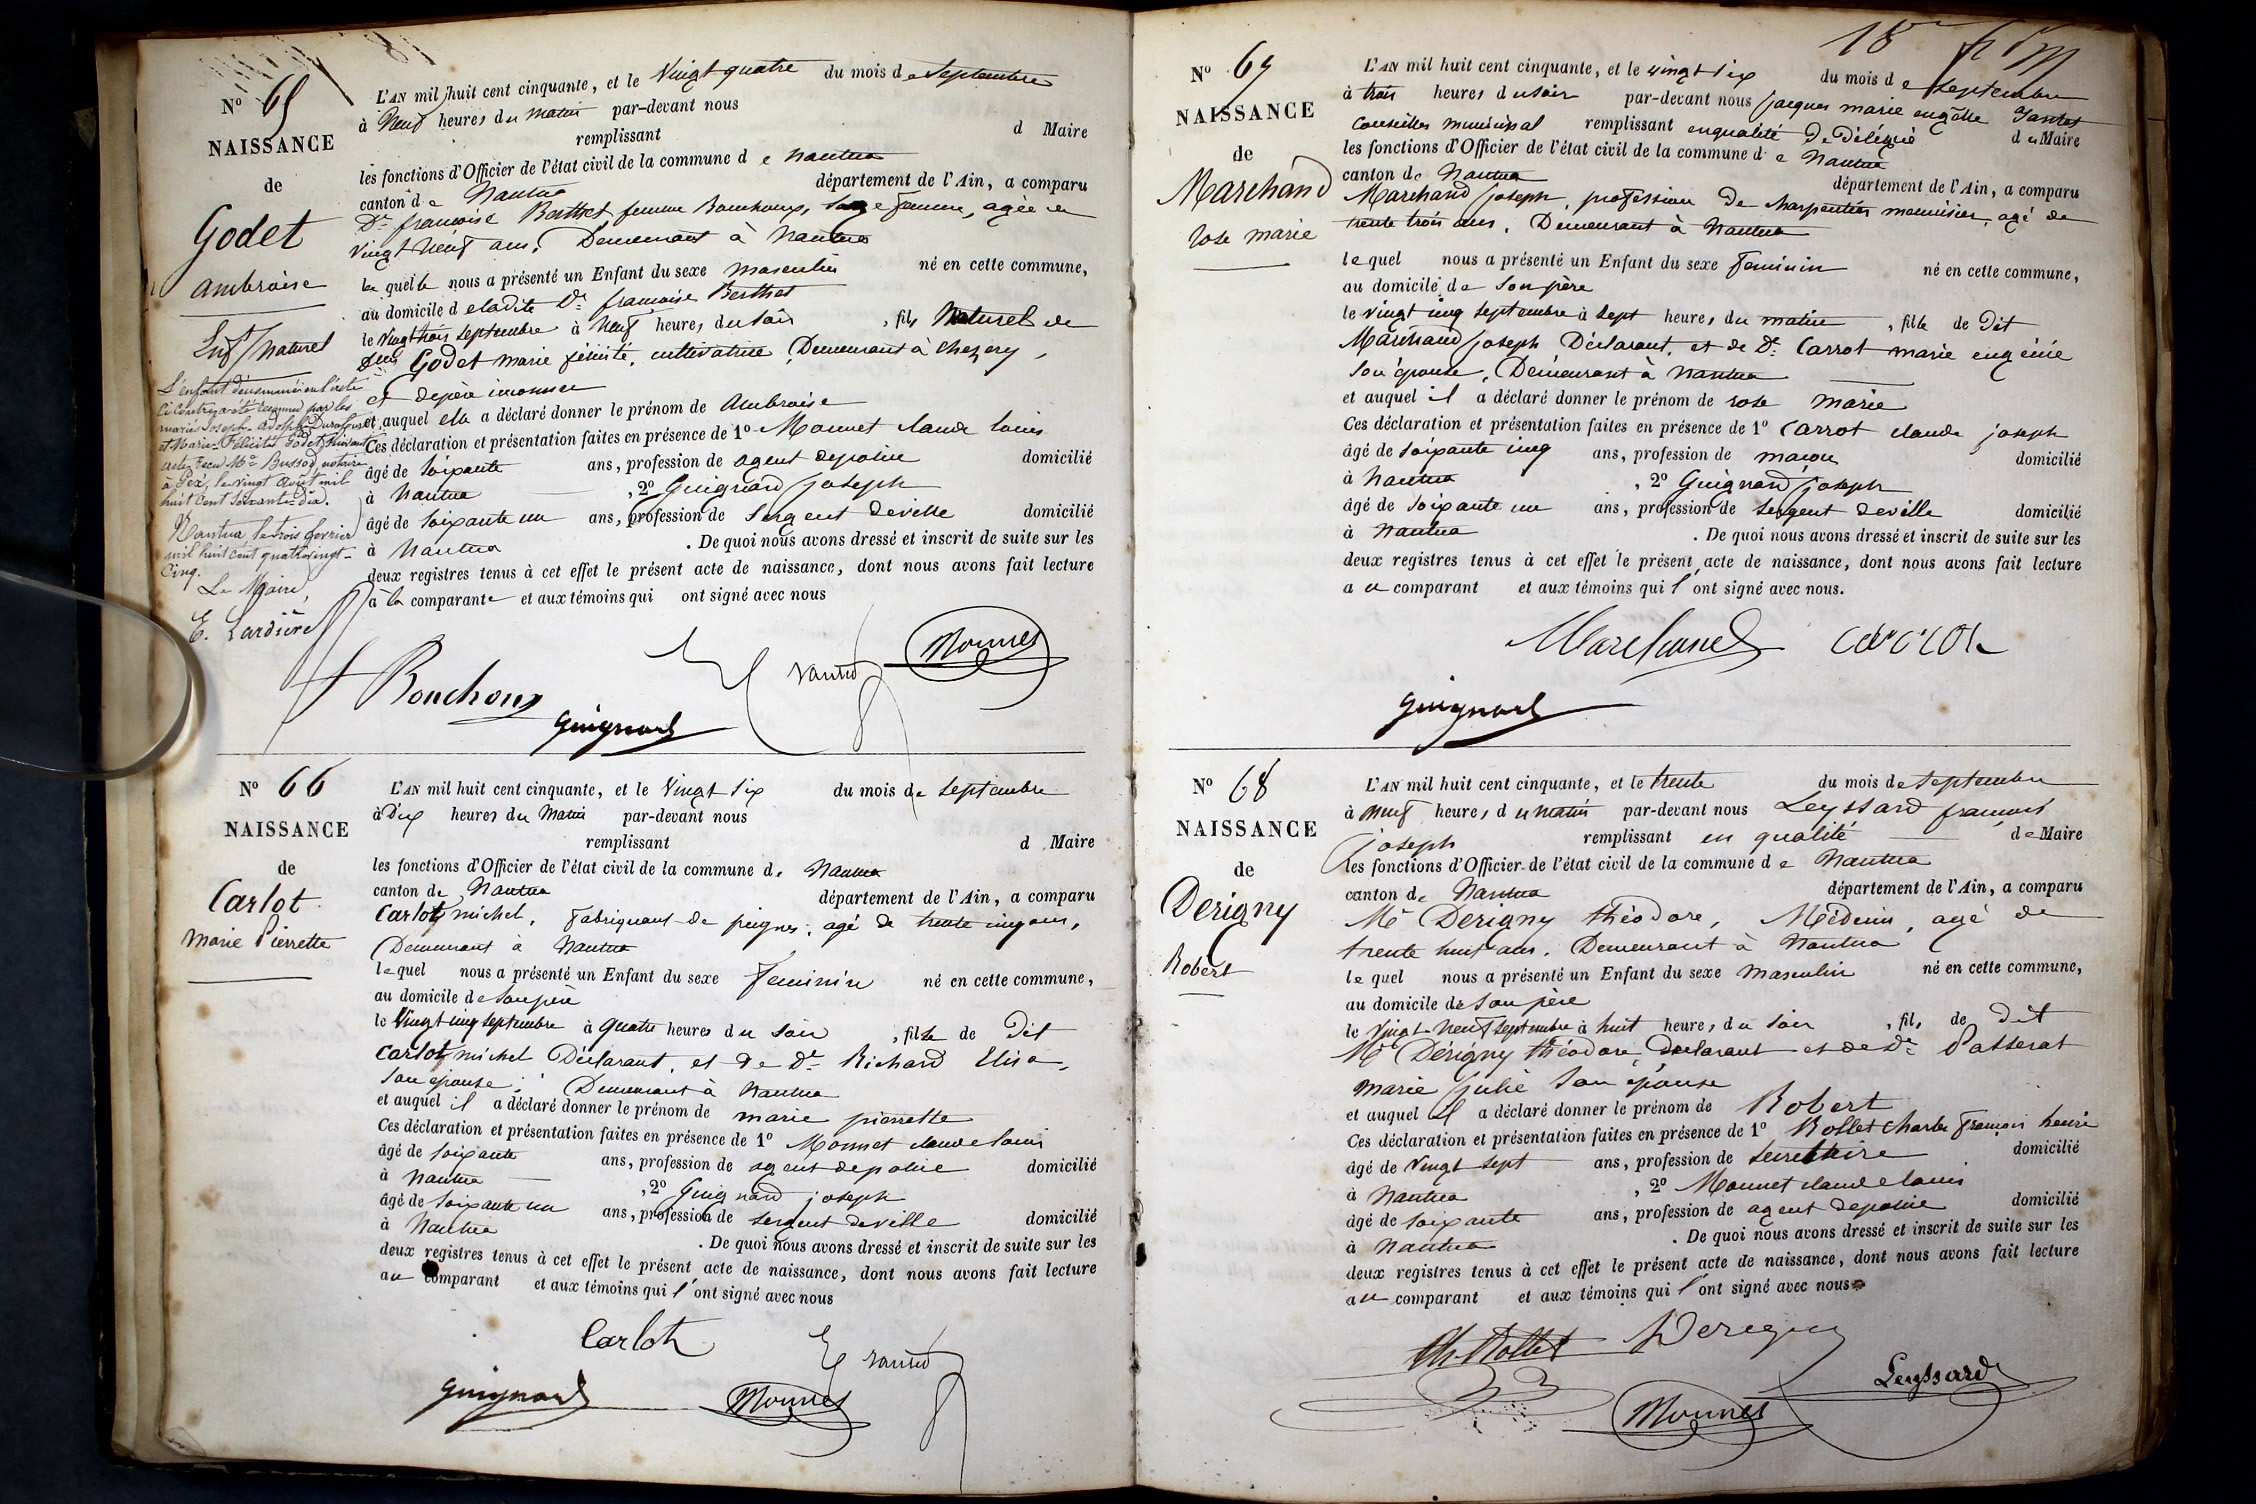 N° 65
NAISSANCE
de
Godet
ambroise
Enft naturel
L'enfant dénommé en l'acte
ci contre, a été reconnu par les
mariés Joseph Adolphe
et Marie Félicité Godet, suivant
acte reçu Me Bussod, notaire
à Gex, le vingt août mil
huit cent soixante-dix.
Nantua le trois février
mil huit cent quatre vingt-
cinq.
Le Maire,
E. Lardière
L'AN mil huit cent cinquante, et le vingt quatre du mois de Septembre
à neuf heures du matin par-devant nous
remplissant d Maire
les fonctions d'Officier de l'état civil de la commune de Nantua
canton de Nantua département de l'Ain, a comparu
De françoise Berthet femme Bouchoux, Sage femme, agée de
vingt neuf ans, Demeurant à Nantua
la quelle nous a présenté un Enfant du sexe masculin né en cette commune,
au domicile de ladite De françoise Berthet
le vingt trois septembre à neuf heures du soir, fils Naturel de
Godet marie félicité, cultivatrice, Demeurant à chezery,
et depère inconnu
et auquel ela a déclaré donner le prénom de ambroise
Ces déclaration et présentation faites en présence de 1° Monnet claude louis
âgé de soixante ans, profession de agent depolice domicilié
à Nantua, 2° Guignard joseph
âgé de soixante un ans, profession de sergent deville domicilié
à Nantua. De quoi nous avons dressé et inscrit de suite sur les
deux registres tenus à cet effet le présent acte de naissance, dont nous avons fait lecture
à la comparante et aux témoins qui ont signé avec nous
f Bouchoux
Monnet
guignard
N° 66
NAISSANCE
de
Carlot
Marie Pierrette
L'AN mil huit cent cinquante, et le vingt six du mois de septembre
à Dix heures du matin par-devant nous
remplissant d Maire
les fonctions d'Officier de l'état civil de la commune de Nantua
canton de Nantua département de l'Ain, a comparu
Carlot michel, fabriquant de peignes, agé de trente cinq ans,
Demeurant à Nantua
le quel nous a présenté un Enfant du sexe feminin né en cette commune,
au domicile de son père
le vingt cinq septembre à quatre heures du soir, fille de Dit
Carlot michel Déclarant, et de De Richard Elisa,
son épouse, Demeurant à Nantua
et auquel il a déclaré donner le prénom de marie pierrette
Ces déclaration et présentation faites en présence de 1° Monnet claude louis
âgé de soixante ans, profession de agent depolice domicilié
à Nantua, 2° Guignard joseph
âgé de soixante un ans, profession de sergent deville domicilié
à Nantua. De quoi nous avons dressé et inscrit de suite sur les
deux registres tenus à cet effet le présent acte de naissance, dont nous avons fait lecture
au comparant et aux témoins qui l'ont signé avec nous
Carlot
guignard
Monnet
18
N° 67
NAISSANCE
de
Marchand
rose marie
L'AN mil huit cent cinquante, et le vingt six du mois de septembre
à trois heures du soir par-devant nous jacques marie eugène
Conseiller municipal remplissant en qualité De Délégué du Maire
les fonctions d'Officier de l'état civil de la commune de Nantua
canton de Nantua département de l'Ain, a comparu
Marchand joseph, profession de charpentier menuisier, agé de
trente trois ans, Demeurant à Nantua
le quel nous a présenté un Enfant du sexe feminin né en cette commune,
au domicile de son père
le vingt cinq septembre à sept heures du matin, fille de Dit
Marchand joseph Déclarant, et de De Carrot marie eugénie
son épouse, Demeurant à Nantua
et auquel il a déclaré donner le prénom de rose marie
Ces déclaration et présentation faites en présence de 1° Carrot claude joseph
âgé de soixante cinq ans, profession de maçon domicilié
à Nantua, 2° Guignard joseph
âgé de soixante un ans, profession de sergent deville domicilié
à Nantua. De quoi nous avons dressé et inscrit de suite sur les
deux registres tenus à cet effet le présent acte de naissance, dont nous avons fait lecture
au comparant et aux témoins qui l'ont signé avec nous.
Marchand carrot
guignard
N° 68
NAISSANCE
de
Derigny
Robert
L'AN mil huit cent cinquante, et le trente du mois de septembre
à neuf heures du matin par-devant nous Leyssard françois
joseph remplissant en qualité de Maire
les fonctions d'Officier de l'état civil de la commune de Nantua
canton de Nantua département de l'Ain, a comparu
Mr Derigny théodore, Médecin, agé de
trente huit ans, Demeurant à Nantua
le quel nous a présenté un Enfant du sexe masculin né en cette commune,
au domicile de son père
le vingt neuf septembre à huit heures du soir, fils de Dit
Mr Dérigny théodore, declarant et de De Passerat
marie julie son épouse
et auquel il a déclaré donner le prénom de Robert
Ces déclaration et présentation faites en présence de 1° Rollet charles françois henri
âgé de vingt sept ans, profession de secretaire domicilié
à Nantua, 2° Monnet claude louis
âgé de soixante ans, profession de agent depolice domicilié
à Nantua. De quoi nous avons dressé et inscrit de suite sur les
deux registres tenus à cet effet le présent acte de naissance, dont nous avons fait lecture
au comparant et aux témoins qui l'ont signé avec nous
Ch. Rollet Derigny
Leyssard
Monnet